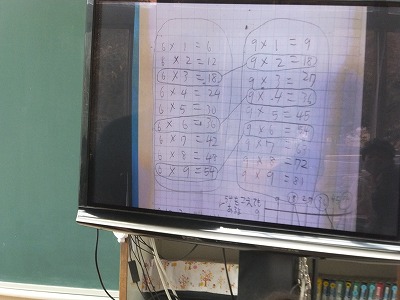 6 × 1 = 6
6 × 2 = 12
6 × 3 = 18
6 × 4 = 24
6 × 5 = 30
6 × 6 = 36
6 × 7 = 42
6 × 8 = 48
6 × 9 = 54
9 × 1 = 9
9 × 2 = 18
9 × 3 = 27
9 × 4 = 36
9 × 5 = 45
9 × 6 = 54
9 × 7 = 63
9 × 8 = 72
9 × 9 = 81